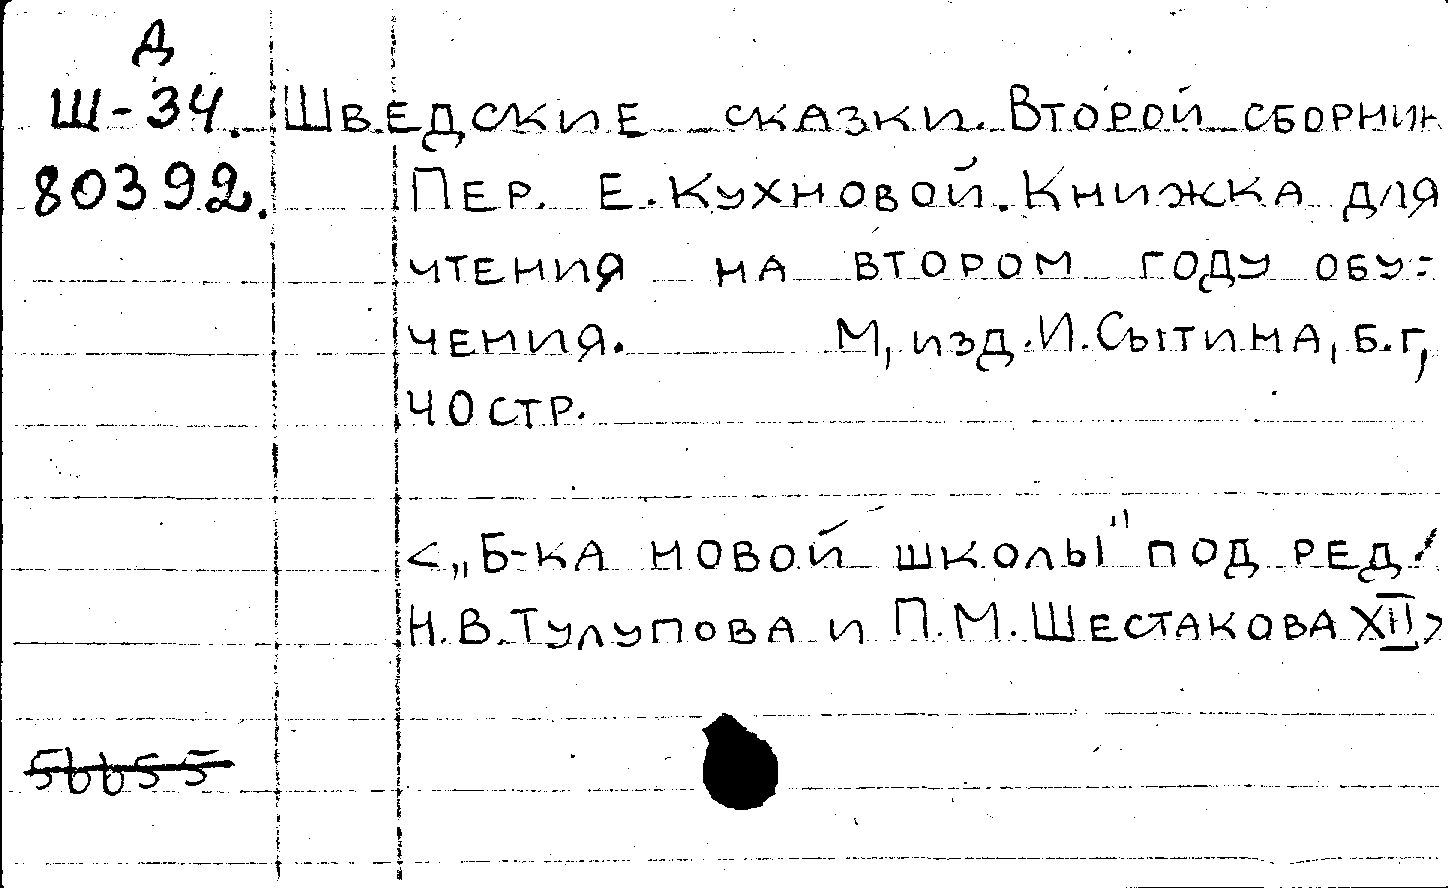 Д
Ш-34. Шведские сказки. Второй сборник
80392. Пер. Е. Кухновой. Книжка для
чтения на втором году обу=
чения. М, изд. И. Сытина, б.г,
40 стр.
<„Б-ка новой школы" под ред.
Н.В. Тулупова и П.М. Шестакова XII>
56655